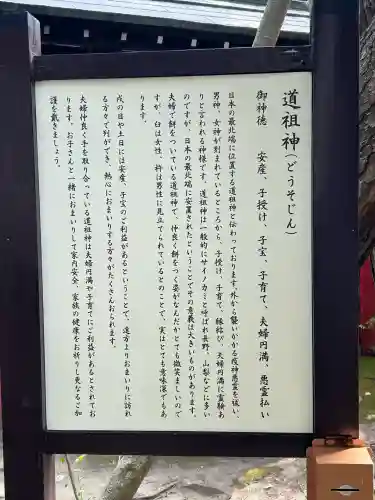 道祖神(どうそじん)
御神徳 安産、子授け、子宝、子育て、夫婦円満、悪霊払い
日本の最北端に位置する道祖神と伝わっております。外から襲いかかる疫神悪霊を祓い、
男神、女神が刻まれているところから、子授け、子育て、縁結び、夫婦円満に霊験あ
りと言われる神様です。道祖神は一般的にサイノカミと呼ばれ長野、山梨などに多い
のですが、日本の最北端に安置されたということでその意義は大きいものがあります。
夫婦で餅をついている道祖神で、仲良く餅をつく姿がなんだかとても微笑ましいので
すが、臼は女性、杵は男性に見立てられているとのことで、実はとても意味深でもあ
ります。
戌の日や土日には安産、子宝のご利益があるということで、遠方よりおまいりに訪れ
る方々で列ができ、熱心におまいりする方々がたくさんおられます。
夫婦仲良く手を取り合っている道祖神は夫婦円満や子育てにご利益があるとされてお
ります。お子さんと一緒におまいりして家内安全、家族の健康をお祈りし更なるご加
護を戴きましょう。